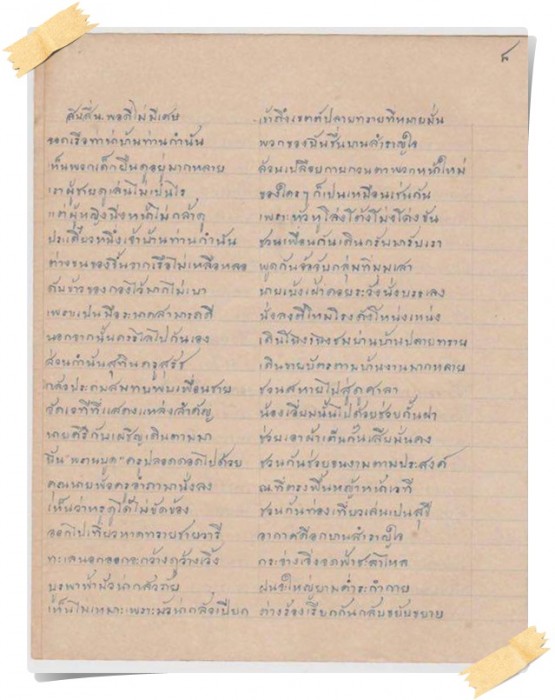 ๖
สิบสี่น. พอดีไม่มีเศษ เข้าถึงเขตต์ปลายทรายที่หมายมั่น
จอดเรือท่าหน้าบ้านท่านกำนัน พวกของฉันชื่นบานสำราญใจ
เห็นพวกเด็กยืนดูอยู่มากหลาย ล้วนเปลือยกาย
เราผู้ชายดูเล่นไม่เป็นไร ของใครๆ ก็เป็นเหมือนเช่นกัน
แต่ผู้หญิงนี่งหน้าไม่กล้าดู เพราะ
ประเดี๋ยวหนึ่งเจ้าบ้านท่านกำนัน ชวนเพื่อนกันเดินกรับมารับเรา
ต่างขนของขึ้นจากเรือไม่เหลือหลอ พูดกันจ้อ
กับข้าวของกองไว้มากไม่เบา นายเน้งเฝ้าคอยระวังนั่งบรรเลง
เพราะเป็นมือระนาดสามารถตี นั่งลงตี
นอกจากนั้นตรงไปไปกันเอง เดินร้องเพลงชมบ้านปลายทราย
ส่วนกำนันสุทินครูสรัช เดินขายบัตรตามบ้านงานมากหลาย
กลัวประถมสมทบพบเพื่อนชาย ชวนสหายไปสู่ดูศาลา
จัดเวทีที่แสดงแหล่งสำคัญ น้องเอี่ยมนั้นไปด้วยช่วยกั้นฝา
นายคีรีกับเผชิญเดินตามมา ช่วยเอาผ้าเต็นกั้นเสียมั่นคง
ขึ้น "พรานบูต" ครูปลอดถอดไปด้วย ชวนกันช่วยจนงานตามประสงค์
คุณนายพ้อครออำภามานั่งลง ณ ที่ตรงพื้นหญ้าหน้าเวที
เห็นว่าหรูดูได้ไม่ขัดข้อง ชวนกันท่องเที่ยวเล่นเป็นสุขี
ออกไปเที่ยวหาดทรายชายวารี อากาศดีอกบานสำราญใจ
ทะเลนอกออกจะกว้างดูว้างเวิ้ง
บูรพาฟ้ามัวน่ากลัวภัย ฝนจะใหญ่ยามค่ำระกำกาย
เห็นไม่เหมาะเพราะมัวน่ากลัวเปียก ต่างร้องเรียกกันกลับขยับขยาย